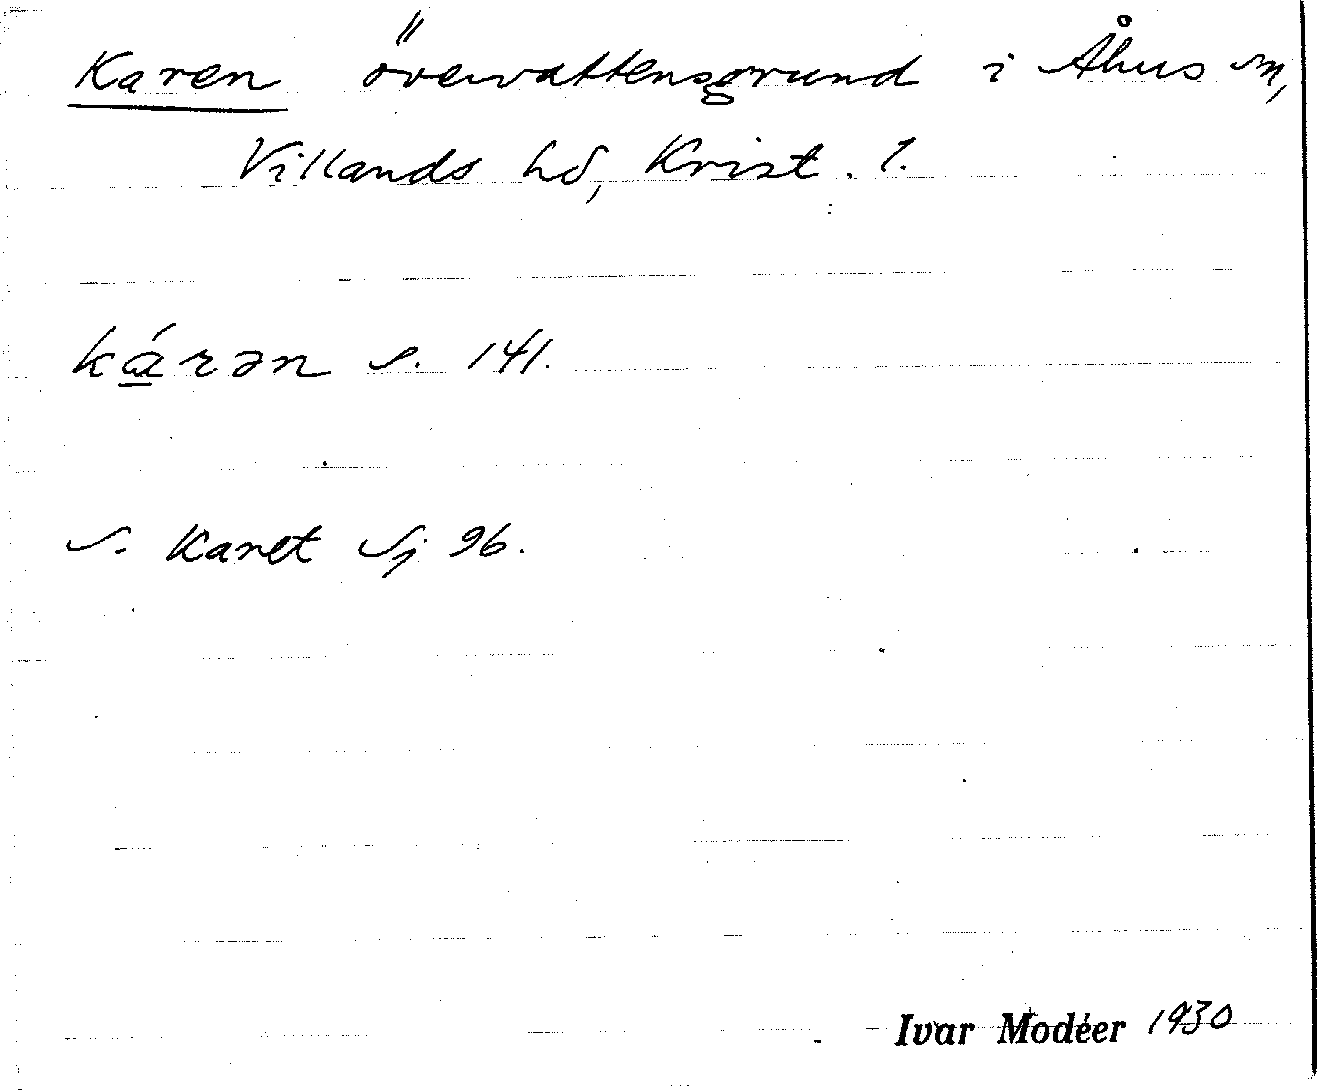 Karen övervattensgrund i Åhus sn,
Villands hd, Krist. l.
ká̱rən s. 141.
S. Karet Sj 96.
Ivar Modéer 1930